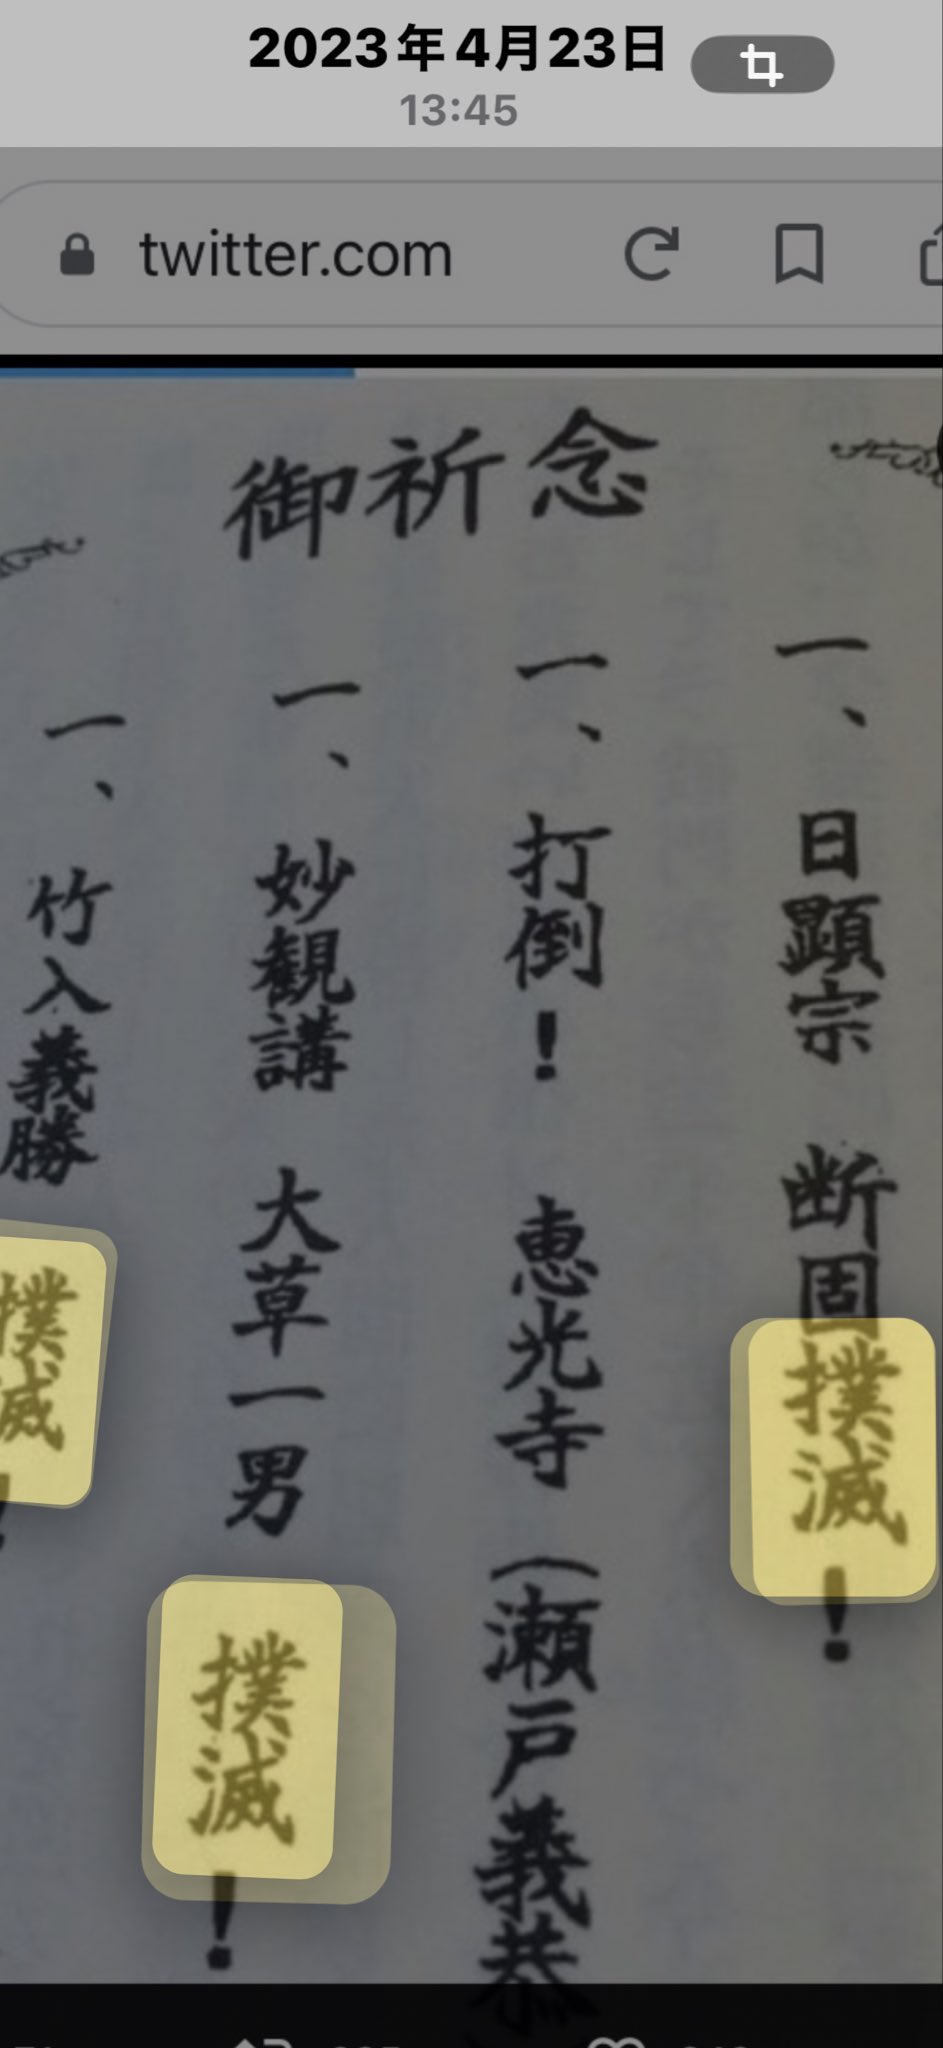 2023年4月23日
13:45
twitter.com
御祈念
一、日顕宗 断固撲滅！
一、打倒！ 恵光寺（瀬戸義恭
一、妙観講 大草一男 撲滅！
一、竹入義勝 撲滅！